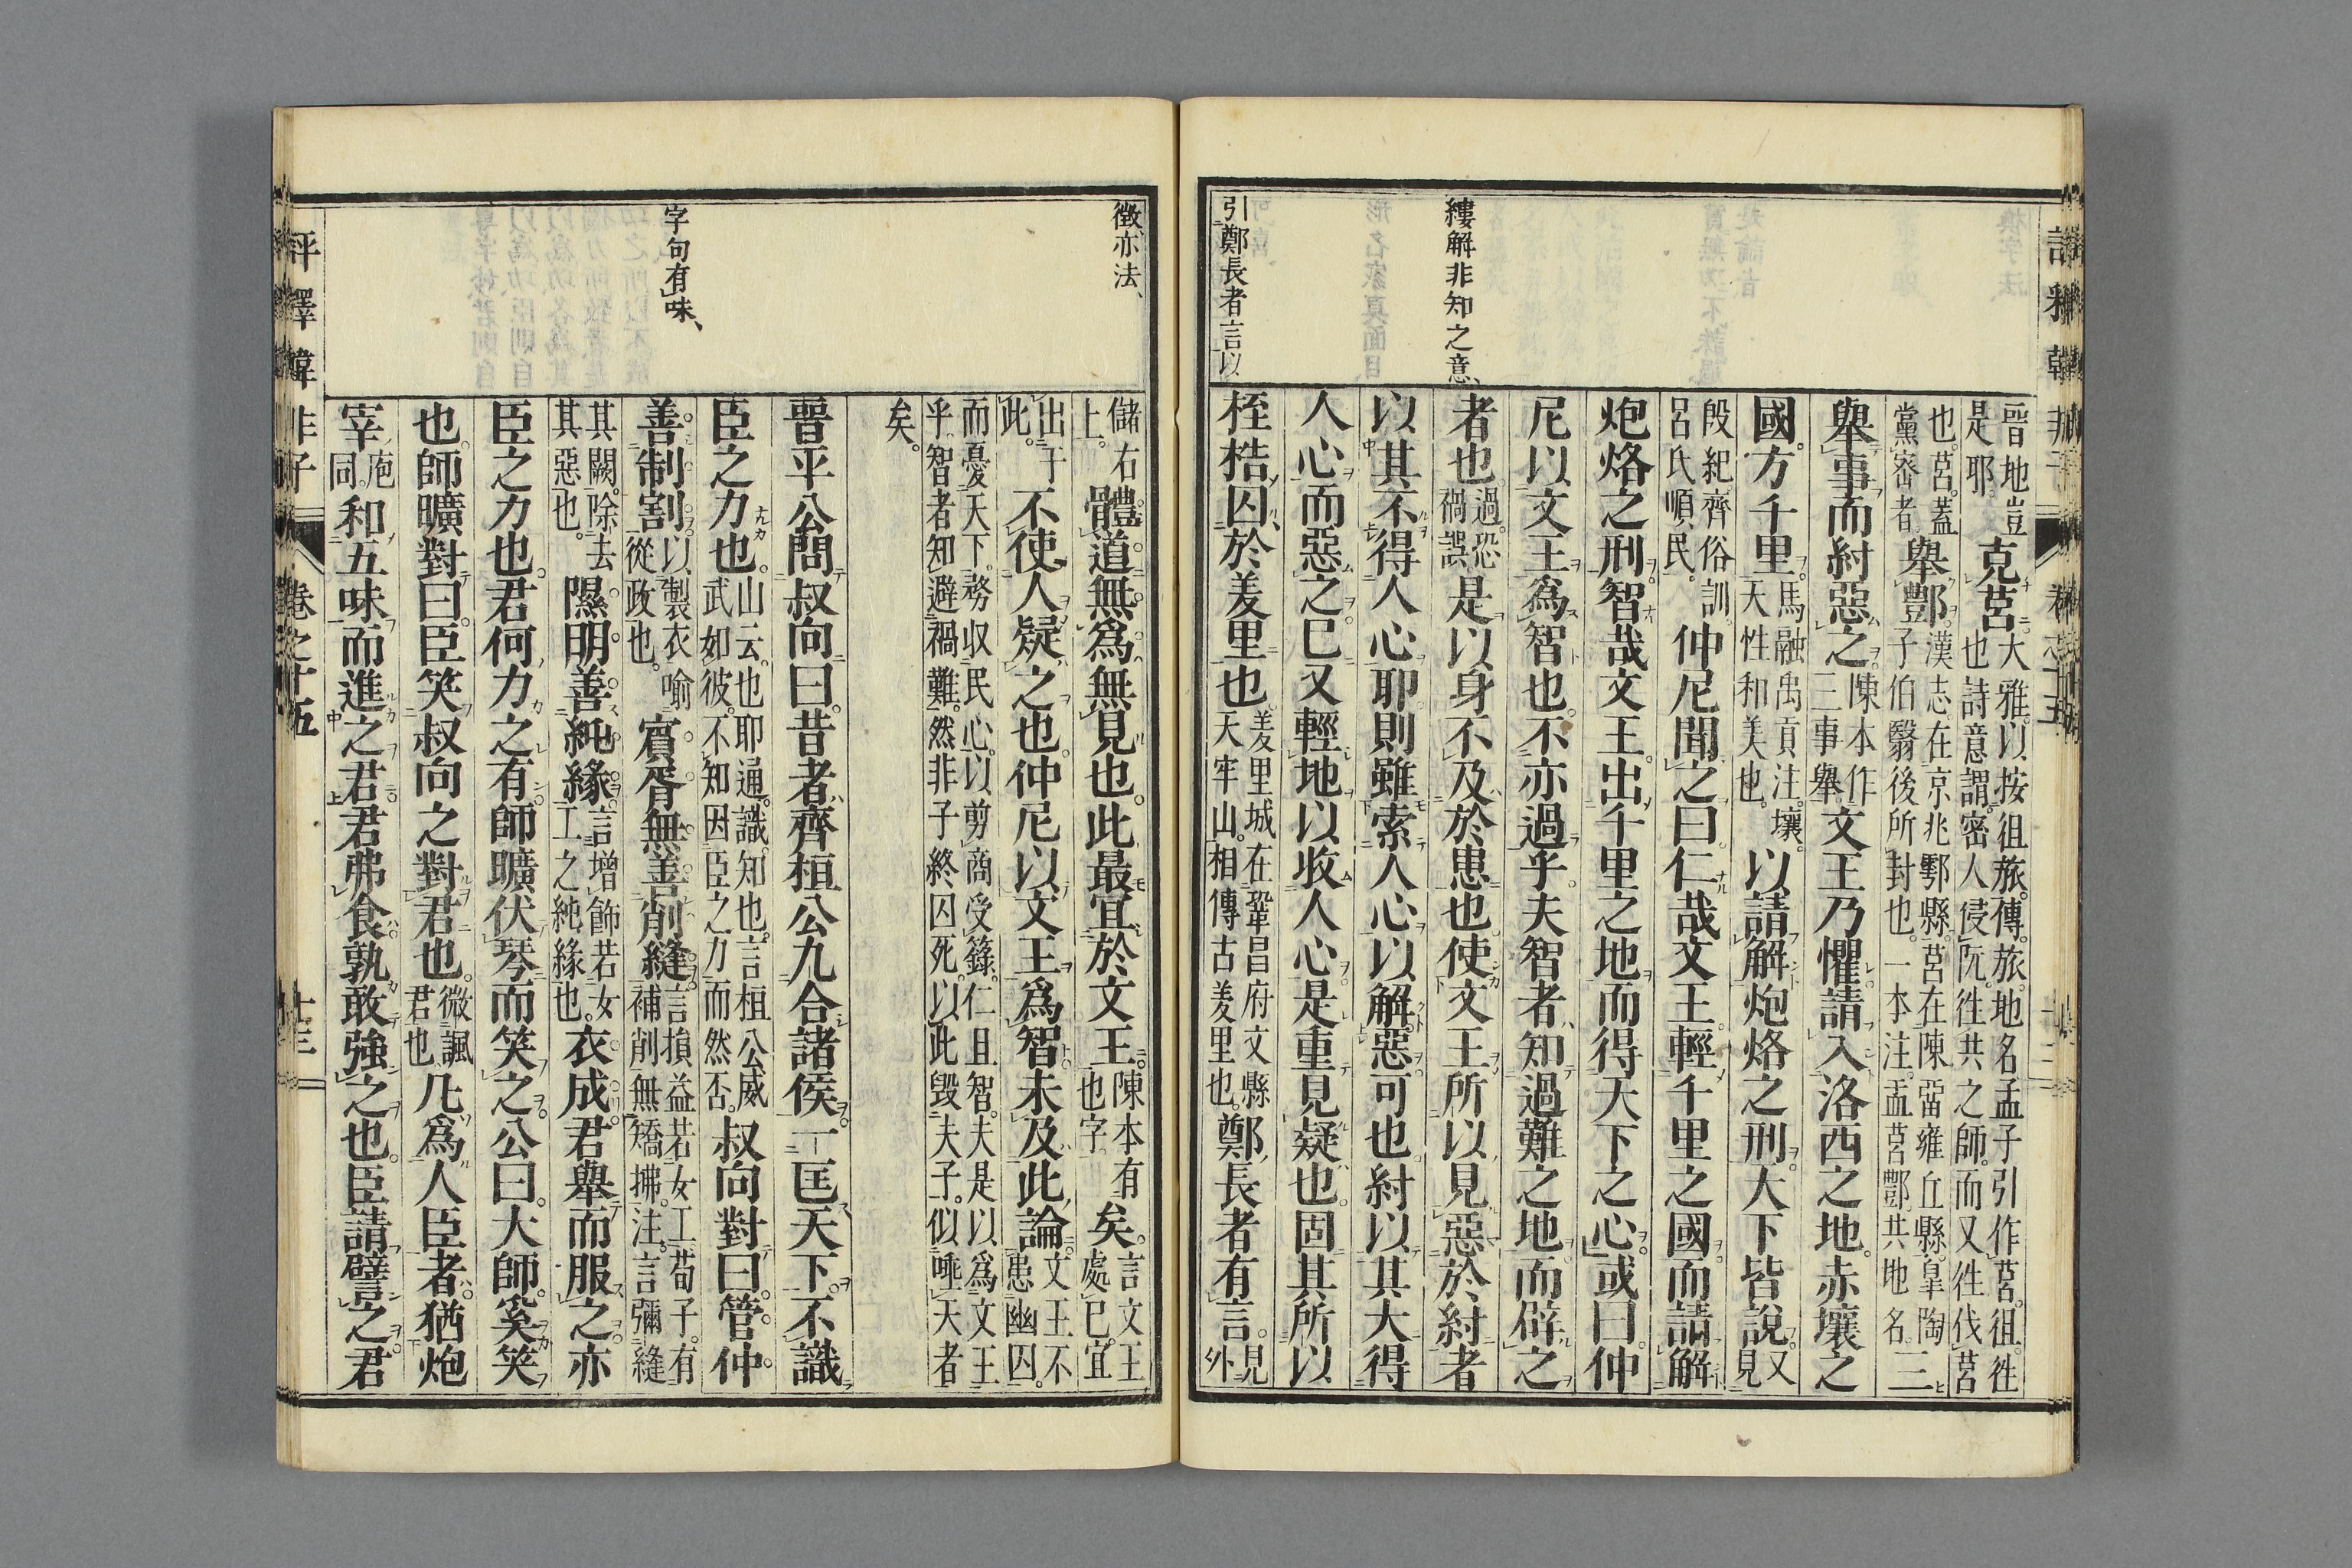 縷解非知之意、
引鄭長者言以
晉地豈
是耶
克莒
大雅。以按徂旅。傳。旅。地名孟子引作莒。徂。徃
也詩意謂。密人侵阮。徃共之師。而又徃伐莒
也。莒。蓋
黨密者
舉酆。
漢志。在京兆鄠縣。莒在陳留雍丘縣。皐陶
子伯翳後所封也。一本注。盂莒酆。共地名
三
舉事而紂惡之。
陳本作
三事舉
文王乃懼請入洛西之地。赤壤之
國。方千里。
馬融禹貢注。壤。
天性和美也。
以請解炮烙之刑。天下皆說。
又
見
殷紀齊俗訓
呂氏順民。
仲尼聞之曰仁哉文王輕千里之國。而請解
炮烙之刑。智哉文王。出千里之地而得天下之心。或曰。仲
尼以文王爲智也。不亦過乎。夫智者知過難之地而辟之
者也。
過。恐
禍誤
是以身不及於患也使文王所以見惡於紂者
以其不得人心耶則雖索人心以解惡可也紂以其大得
人心而惡之。已又輕地以收人心是重見疑也。固其所以
桎梏囚於羑里也。
羑里城在鞏昌府文縣
天牢山。相傳古羑里也。
鄭長者有言。
見
外
徵亦法、
字句有味、
儲右
上。
體道無爲無見也。此最宜於文王。
陳本有
也字。
矣。
言文王
處已。宜
出于
此。
不使人疑之也。仲尼以文王爲智未及此論。
文王不
患幽囚。
而憂天下。務収民心。以剪商受籙。仁且智。夫是以爲文王
乎智者知避禍難。然非子終囚死。以此毀夫子。似唾天者
矣。
晉平公問叔向曰。昔者齊桓公九合諸侯。一匡天下。不識
臣之力也。
山云。也耶通。識。知也。言桓公威
武如彼。不知因臣之力而然否。
叔向對曰。管仲。
善制割。
以製衣喻
從政也。
賓胥無善削縫。
言損益若女工荀子。有
補削無矯拂。注。言彌縫
其闕。除去
其惡也。
隰朋善純緣。
言增飾若女
工之純緣也。
衣成君舉而服之。亦
臣之力也。君何力之有。師曠伏琴而笑之。公曰。大師。奚笑
也。師曠對曰。臣笑叔向之對君也。
微諷
君也
凡爲人臣者。猶炮
宰。
庖
同。
和五味而進之君。君弗食孰敢強之也。臣請譬之。君
評釋韓非子 卷之十五 十三